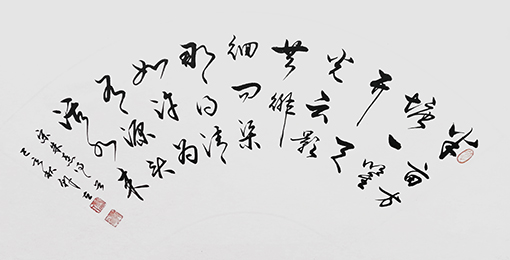 半亩方
塘一鑒
开天
光云影
共徘
徊问渠
那得清
如许为
有源头
活水来
宋朱熹
己亥秋